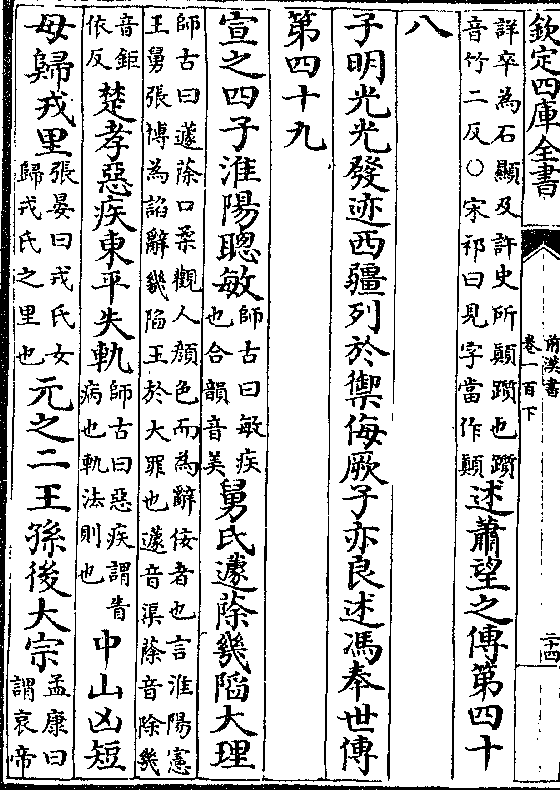 欽定四庫全書
前漢書
卷一百下
二十四
詳卒為石顯及許史所顛躓也躓
音竹二反○宋祁曰見字當作顛
述蕭望之傳第四十
八
子明光光發迹西疆列於禦侮厥子亦良述馮奉世傳
第四十九
宣之四子淮陽聰敏
師古曰敏疾
也合韻音美
舅氏蘧蒢幾陷大理
師古曰蘧蒢口柔觀人顔色而為辭佞者也言淮陽憲
王舅張博為諂辭幾陷王於大罪也蘧音渠蒢音除幾
音鉅
依反
楚孝惡疾東平失軌
師古曰惡疾謂眚
病也軌法則也
中山凶短
母歸戎里
張晏曰戎氏女
歸戎氏之里也
元之二王孫後大宗
孟康曰
謂哀帝